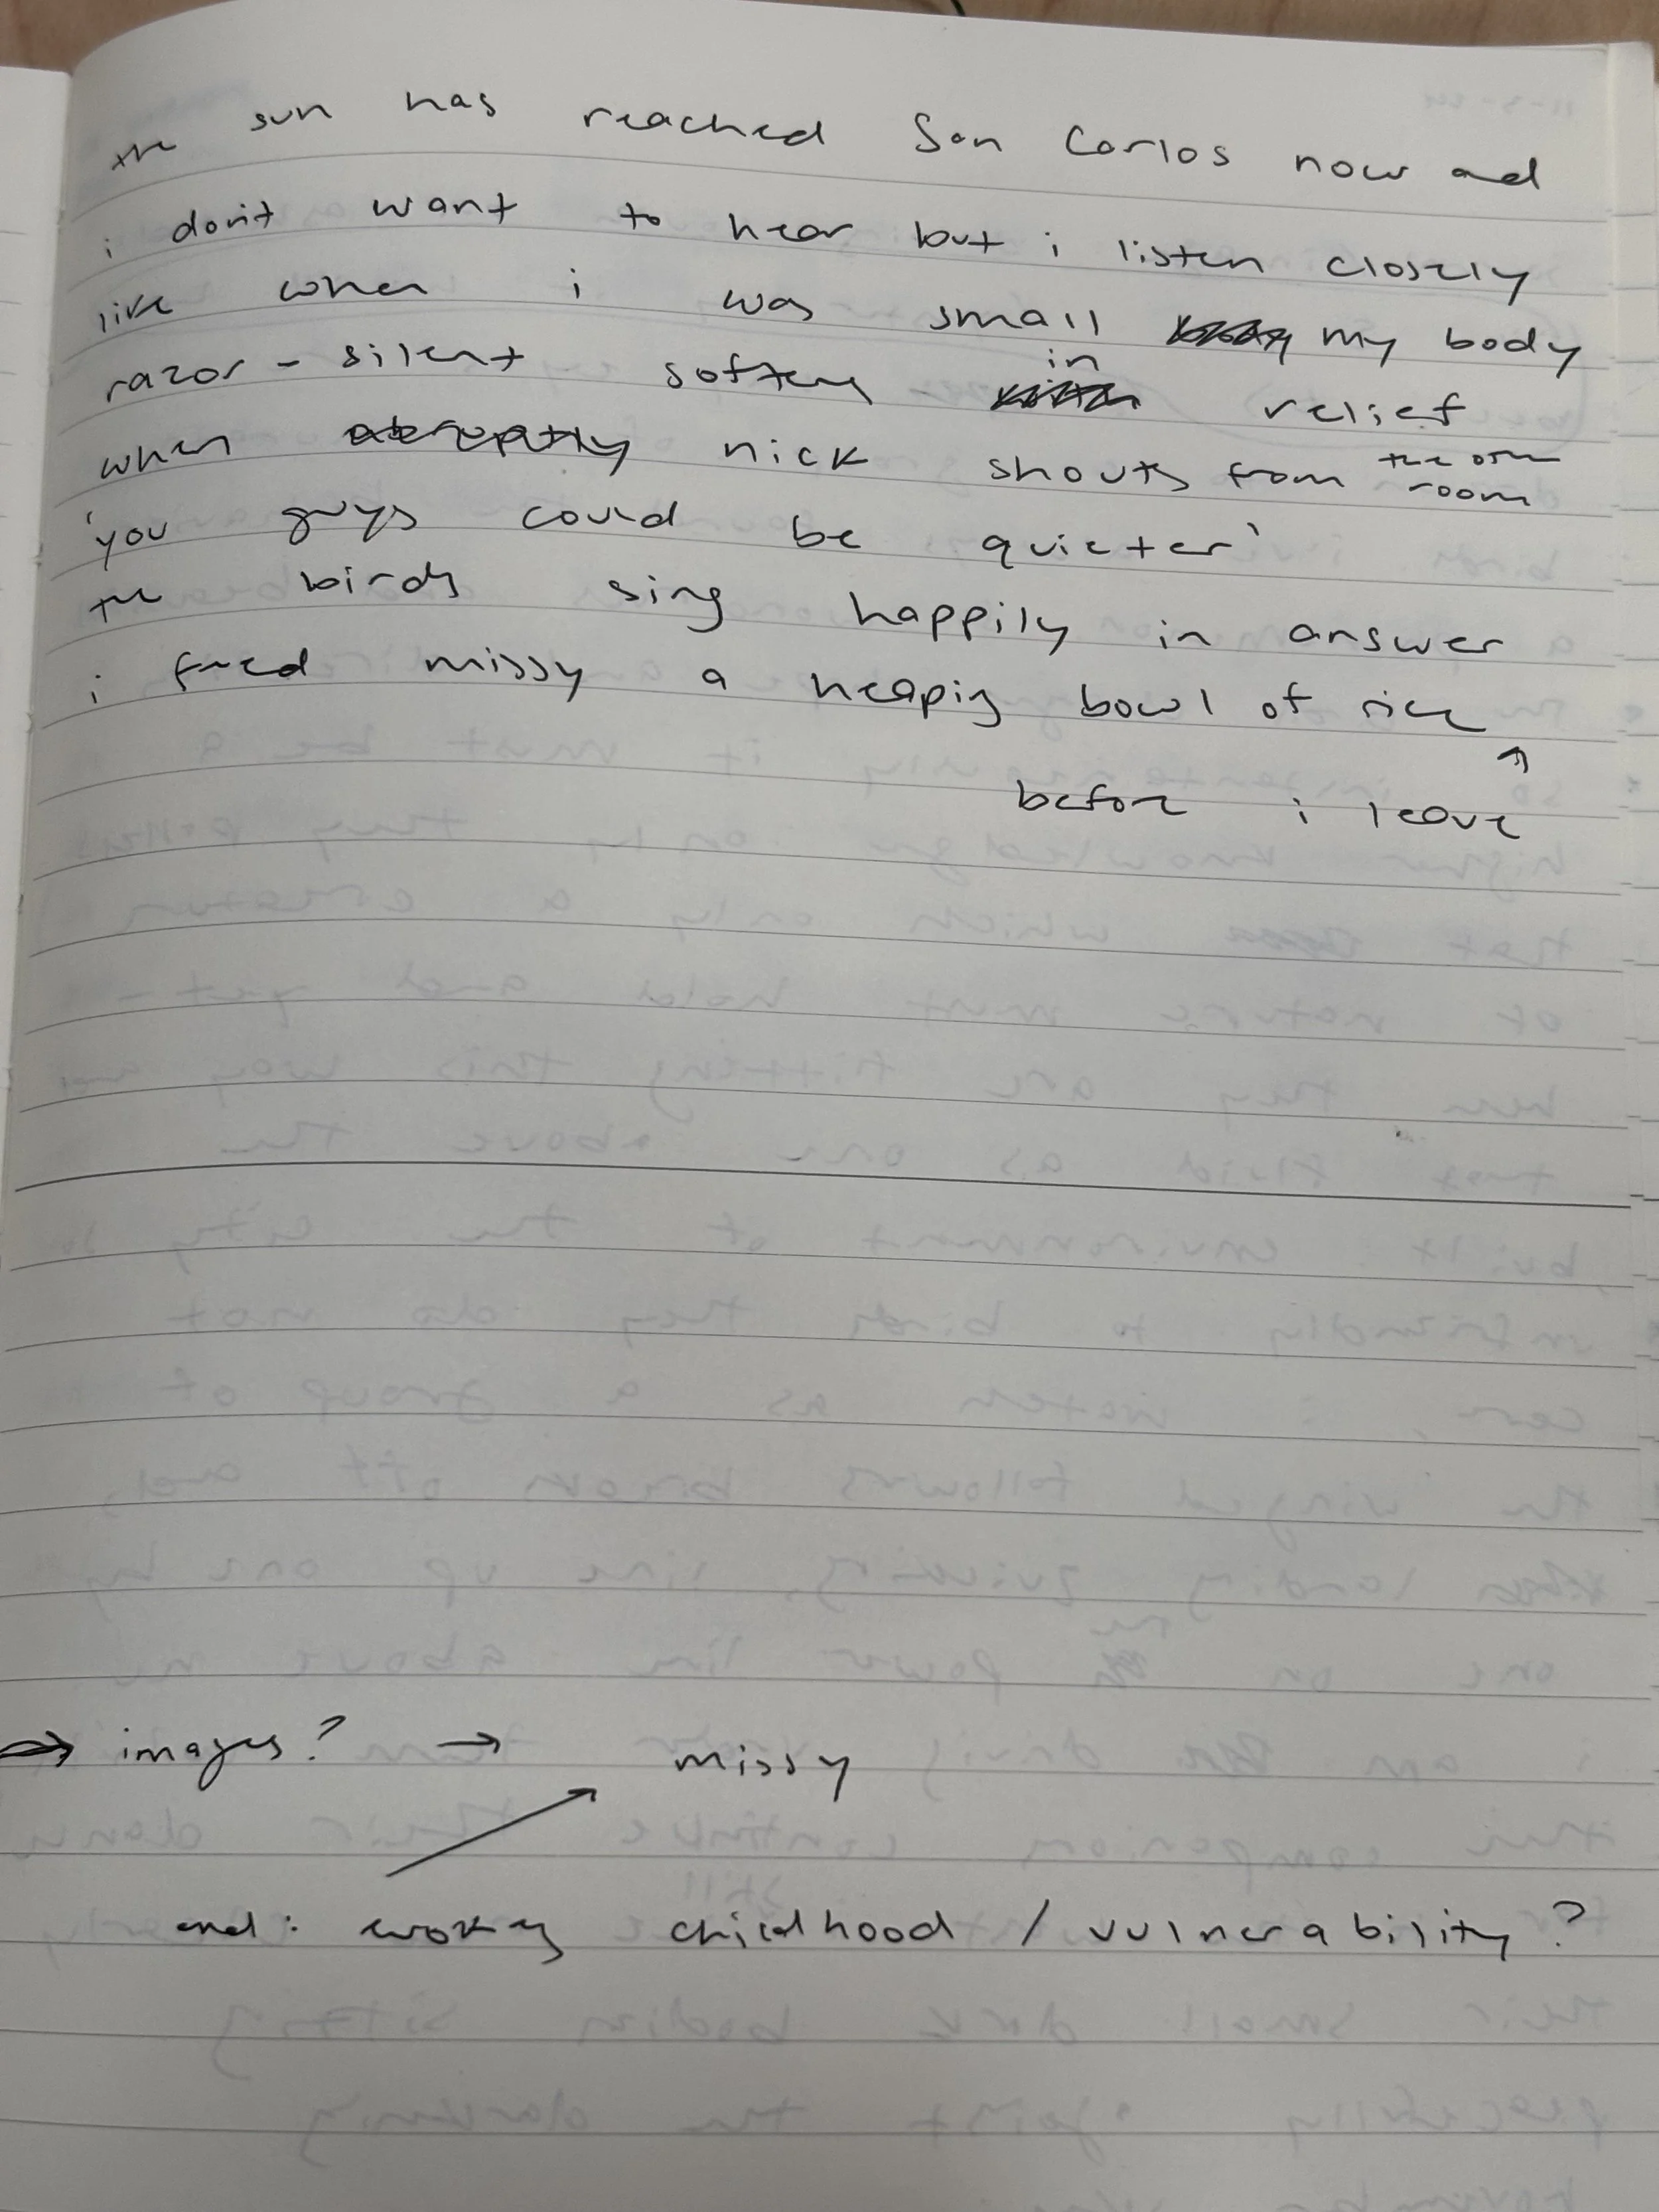 the sun has reached San Carlos now and
i don't want to hear but i listen closely
like when i was small my body
razor-silent softens in relief
when abruptly nick shouts from the other room
'you guys could be quieter'
the birds sing happily in answer
i feed missy a heaping bowl of rice
before i leave
→ images? → missy
end: childhood / vulnerability?